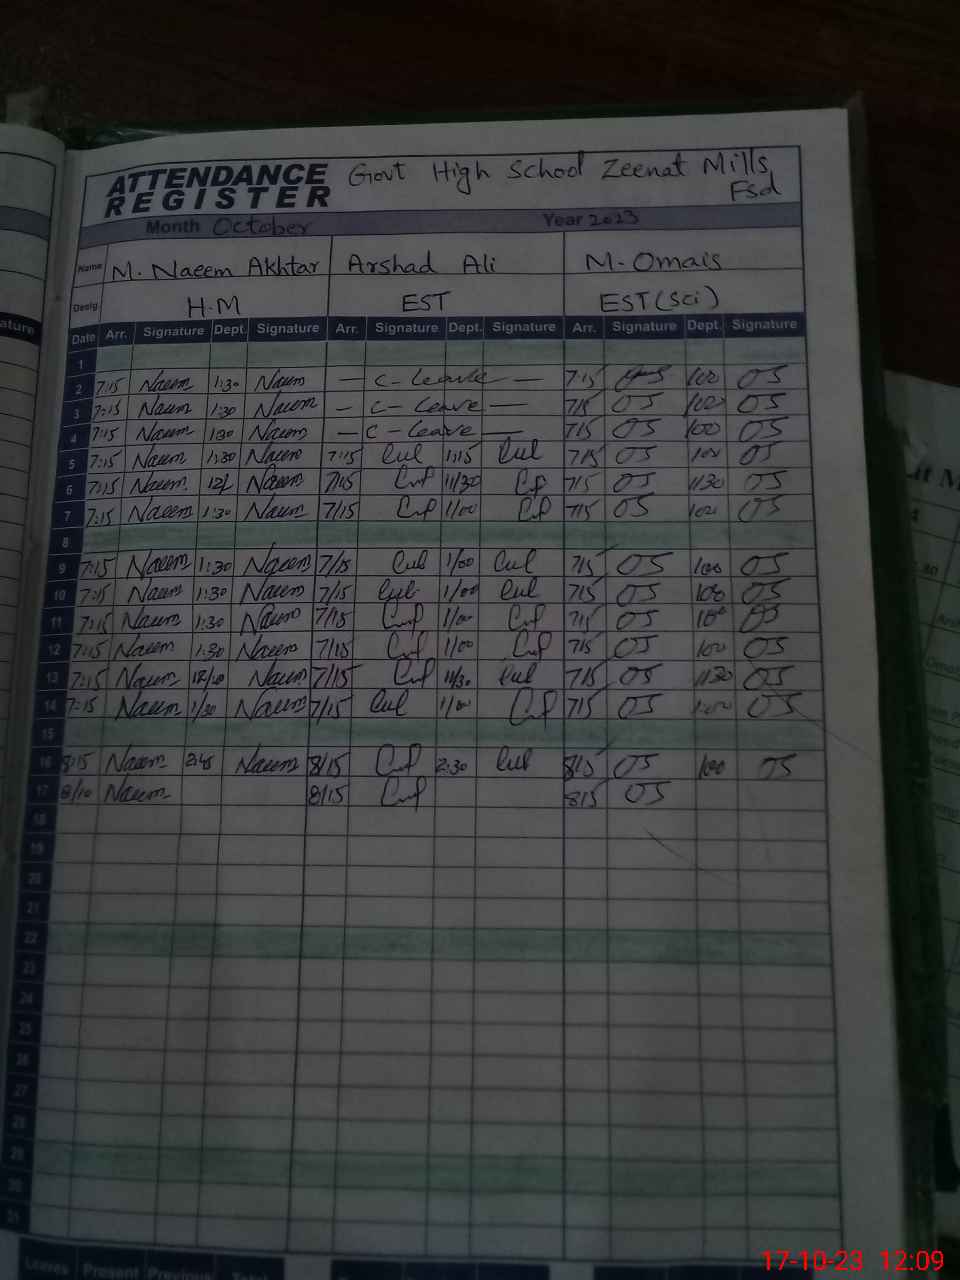 ATTENDANCE REGISTER Govt High School Zeenat Mills Fsd
Month October Year 2023
Name M. Naeem Akhtar Arshad Ali M. Omais
Desig. H.M EST EST (Sci)
Date Arr. Signature Dept. Signature Arr. Signature Dept. Signature Arr. Signature Dept. Signature
1
2 7:15 Naeem 1:30 Naeem — C-Leave — 715 OS 100 OS
3 7:15 Naeem 1:30 Naeem — C-Leave — 715 OS 100 OS
4 7:15 Naeem 130 Naeem — C-Leave — 715 OS 100 OS
5 7:15 Naeem 1:30 Naeem 7:15 1:15 715 OS 100 OS
6 7:15 Naeem. Naeem 7/15 11/30 715 OS 1130 OS
7 7:15 Naeem 1:30 Naeem 7/15 1/00 715 OS 100 OS
8
9 7:15 Naeem 1:30 Naeem 7/15 1/00 715 OS 100 OS
10 7:15 Naeem 1:30 Naeem 7/15 1/00 715 OS 100 OS
11 7:15 Naeem 1:30 Naeem 7/15 1/00 715 OS 100 OS
12 7:15 Naeem 1:30 Naeem 7/15 1/00 715 OS 100 OS
13 7:15 Naeem Naeem 7/15 11/30 715 OS 1130 OS
14 7:15 Naeem 1/30 Naeem 7/15 1/00 715 OS 100 OS
15
16 8/15 Naeem 245 Naeem 8/15 2:30 8/5 OS 100 OS
17 8/10 Naeem 8/15 815 OS
18
19
20
21
22
23
24
25
26
27
28
29
30
31
Leaves Present Previous Total
17-10-23 12:09